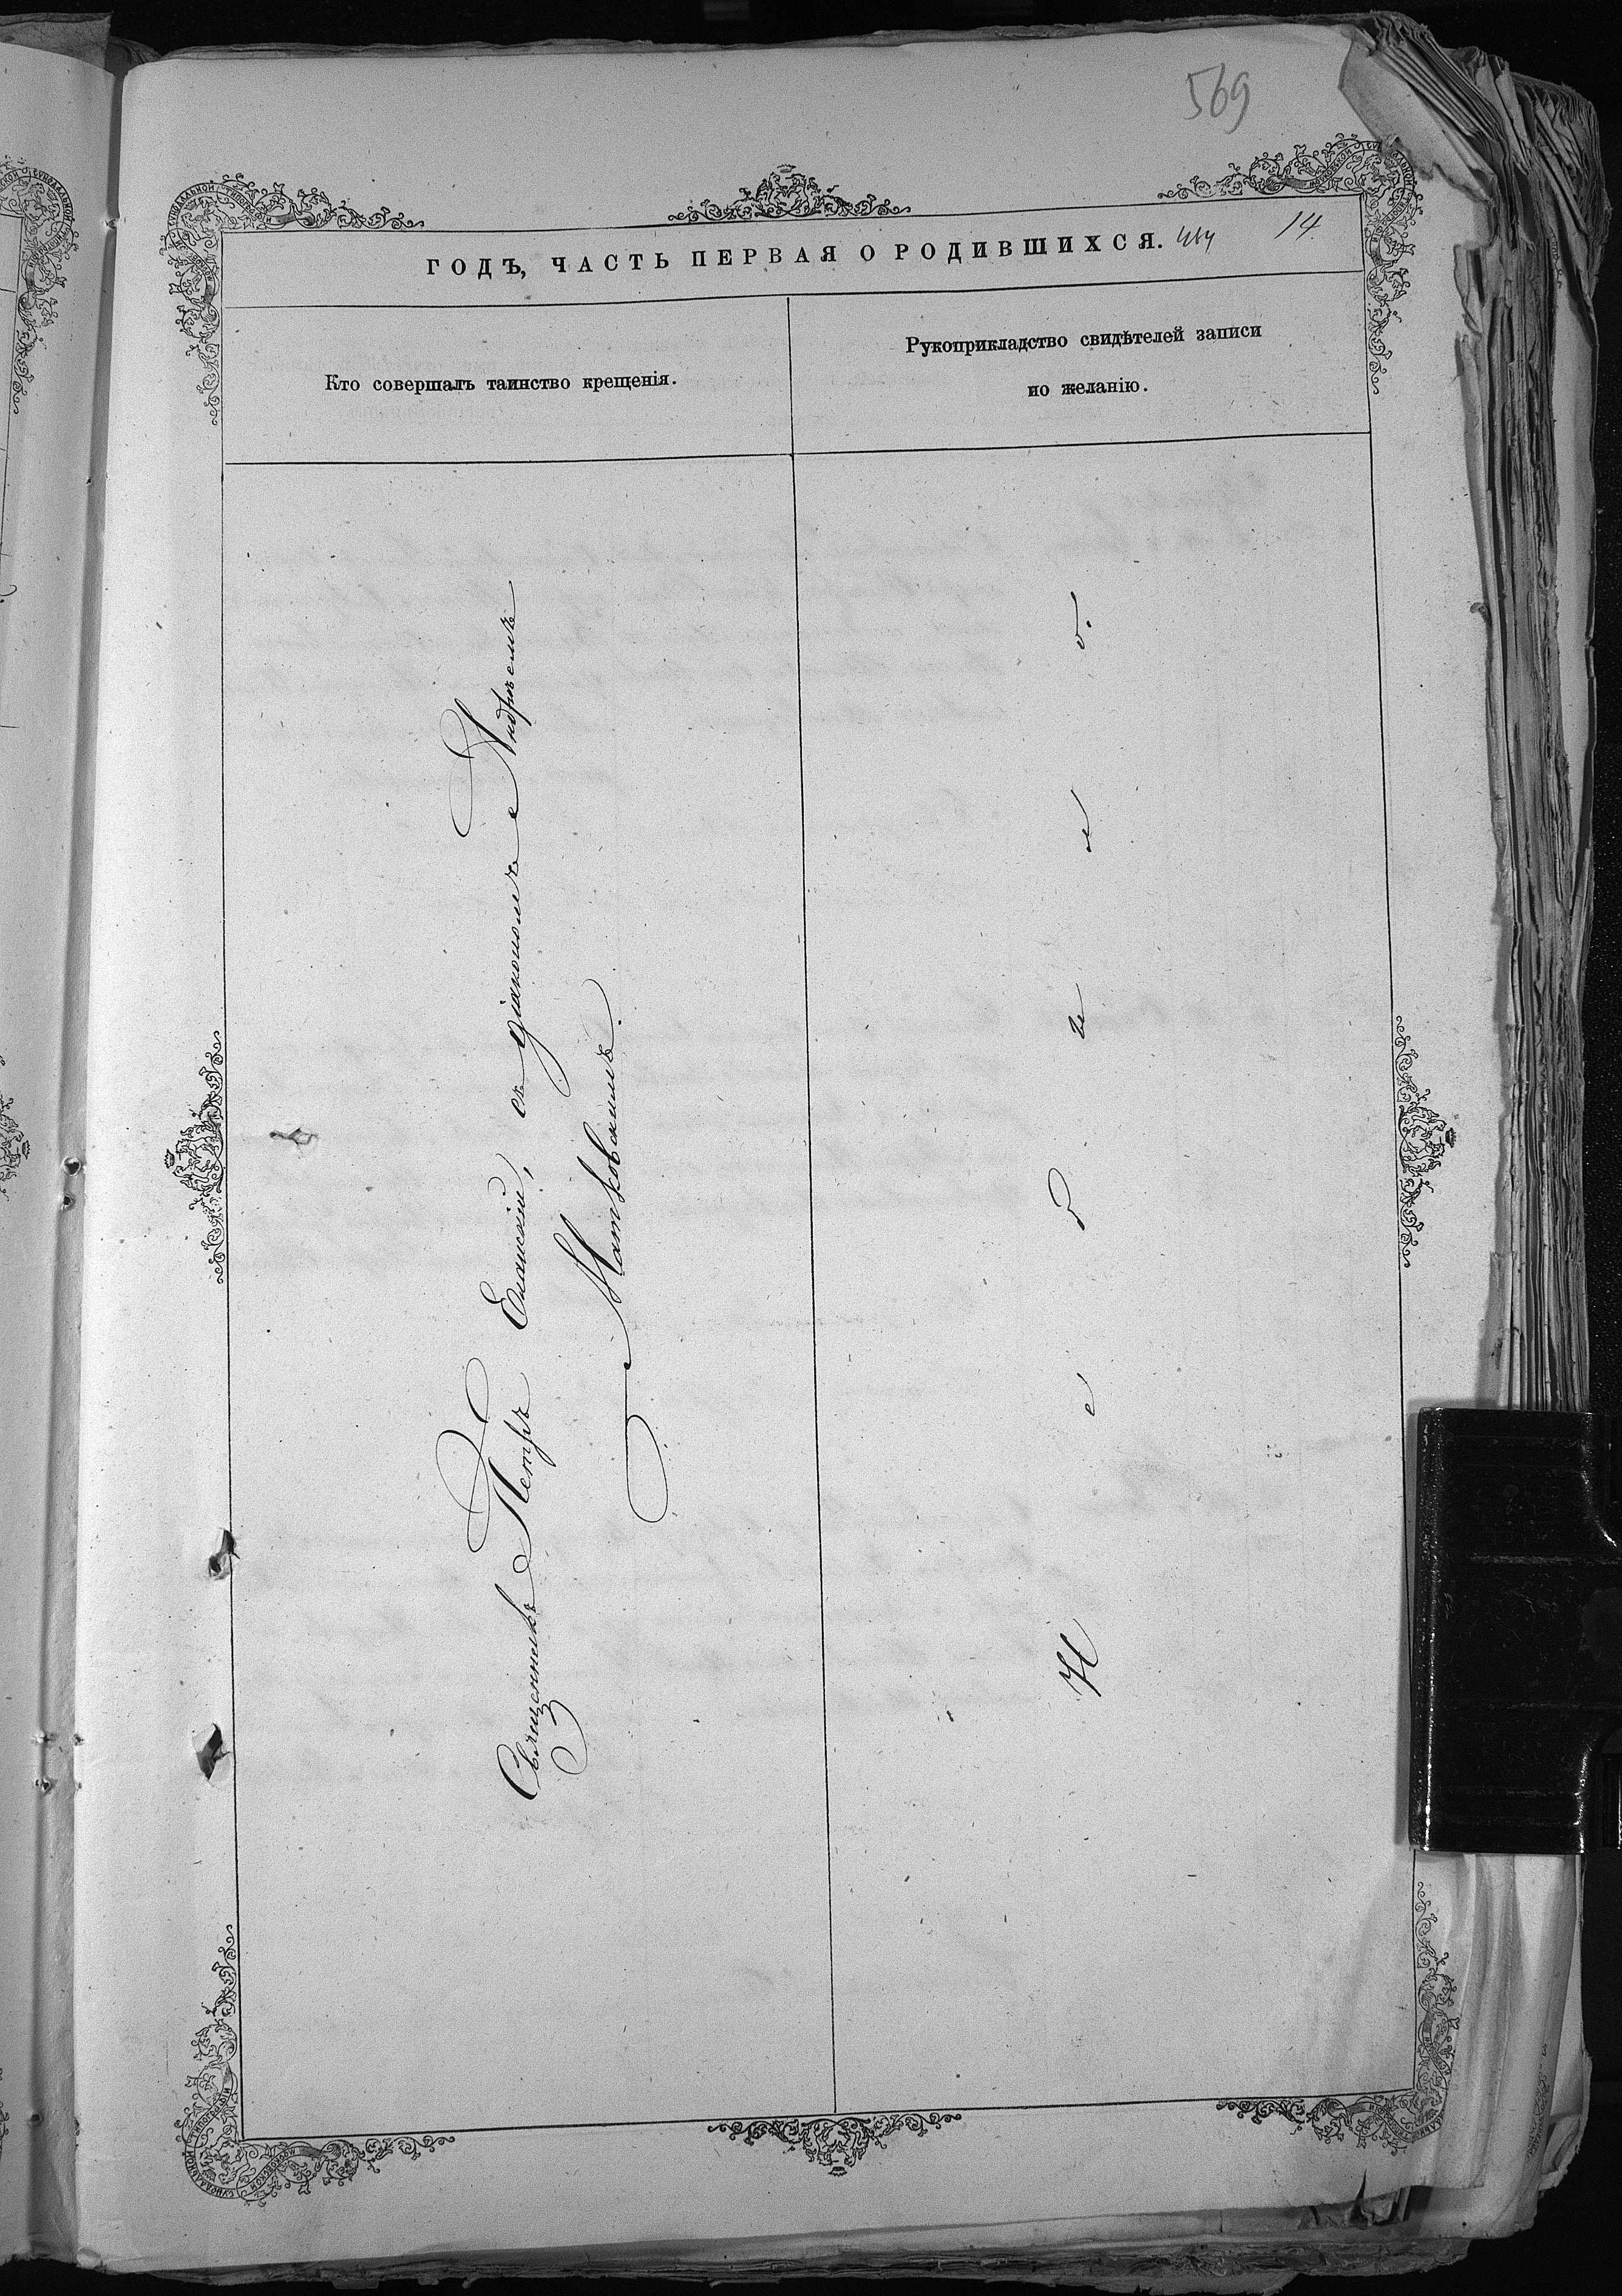 569
ГОДЪ, ЧАСТЬ ПЕРВАЯ О РОДИВШИХСЯ.
14.
Кто совершалъ таинство крещенія.
Рукоприкладство свидѣтелей записи
по желанію.
Священникъ Петръ Еланскій, съ діакономъ Андреемъ
Матковскимъ.